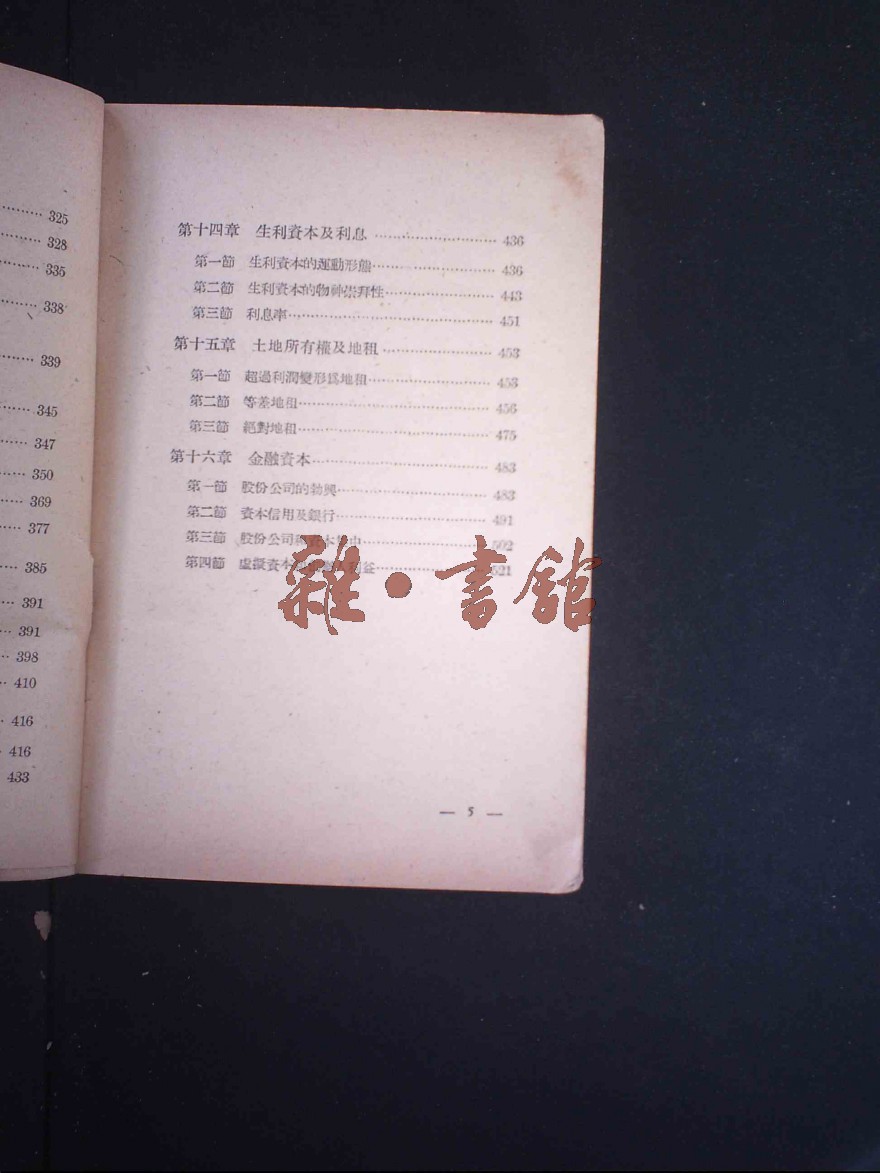 325
328
335
338
339
345
347
350
369
377
385
391
391
398
410
416
416
433
第十四章 生利資本及利息 ········ 436
第一節 生利資本的運動形態 ········ 436
第二節 生利資本的物神崇拜性 ········ 443
第三節 利息率 ········ 451
第十五章 土地所有權及地租 ········ 453
第一節 超過利潤變形爲地租 ········ 453
第二節 等差地租 ········ 456
第三節 絕對地租 ········ 475
第十六章 金融資本 ········ 483
第一節 股份公司的勃興 ········ 483
第二節 資本信用及銀行 ········ 491
第三節 股份公司 資本 ········ 502
第四節 虛擬資本 ········ 521
雜·書館
— 5 —